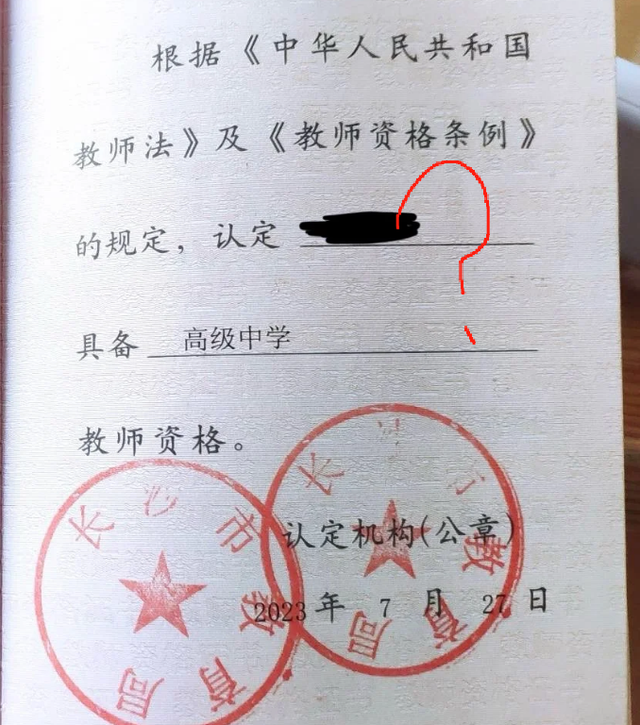 根据《中华人民共和国
教师法》及《教师资格条例》
的规定，认定
具备 高级中学
教师资格。
认定机构(公章)
2023 年 7 月 27 日
长沙市教育局
长沙市教育局